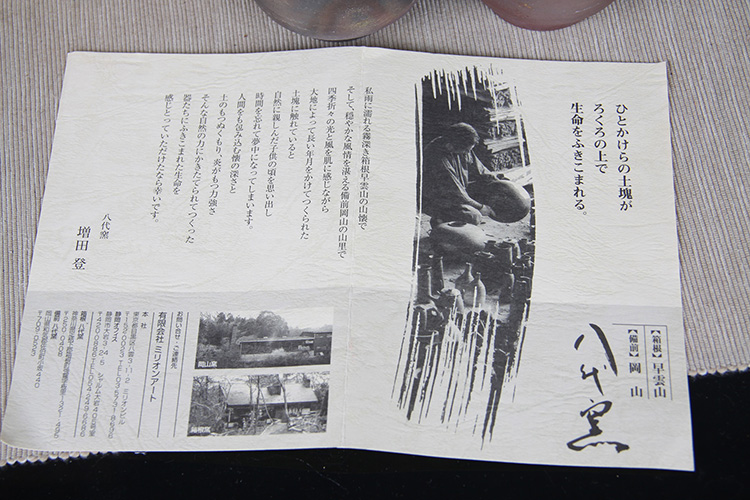 ひとかけらの土塊が
ろくろの上で
生命をふきこまれる。
【箱根】早雲山
【備前】岡山
八代窯
私雨に濡れる霧深き箱根早雲山の山懐で
そして、穏やかな風情を湛える備前岡山の山里で
四季折々の光と風を肌に感じながら
大地によって長い年月をかけてつくられた
土塊に触れていると
自然に親しんだ子供の頃を思い出し
時間を忘れて夢中になってしまいます。
人間をも包み込む懐の深さと
土のもつぬくもり、炎がもつ力強さ
そんな自然の力にかきたてられてつくった
器たちにふきこまれた生命を
感じとっていただけたなら幸いです。
八代窯
増田 登
岡山窯
箱根窯
お問い合せ・ご連絡先
有限会社 ミリオンアート
本社
静岡オフィス
箱根 八代窯
備前 八代窯